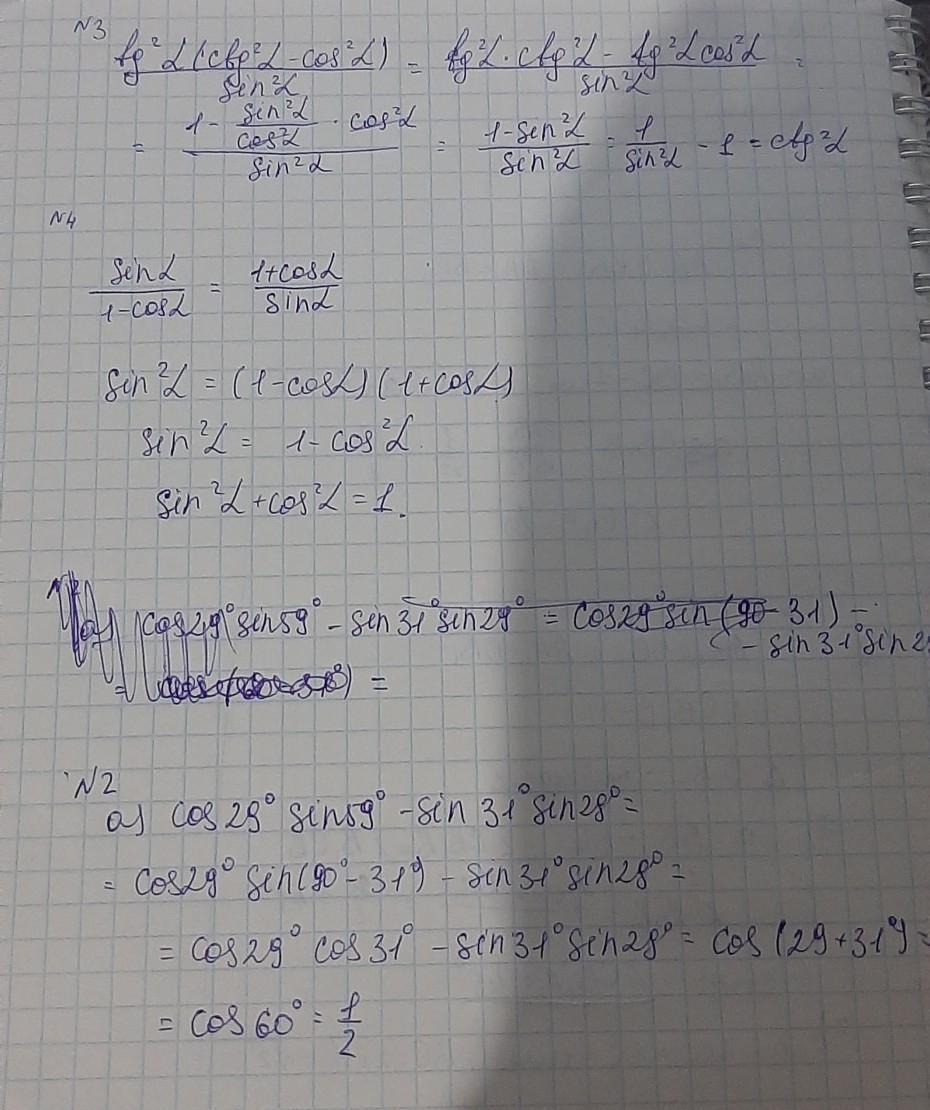 N3
tg²α(ctg²α - cos²α) / sin²α = tg²α · ctg²α - tg²α cos²α / sin²α =
= 1 - sin²α / cos²α · cos²α / sin²α = 1 - sin²α / sin²α = 1 / sin²α - 1 = ctg²α
N4
sinα / 1-cosα = 1+cosα / sinα
sin²α = (1-cosα)(1+cosα)
sin²α = 1-cos²α.
sin²α + cos²α = 1.
cos29° sin59° - sin31° sin29° = cos29° sin(90-31) -
- sin31° sin2
= =
N2
a) cos29° sin59° - sin31° sin29° =
= cos29° sin(90°-31°) - sin31° sin29° =
= cos29° cos31° - sin31° sin29° = cos(29+31°) =
= cos60° = 1/2